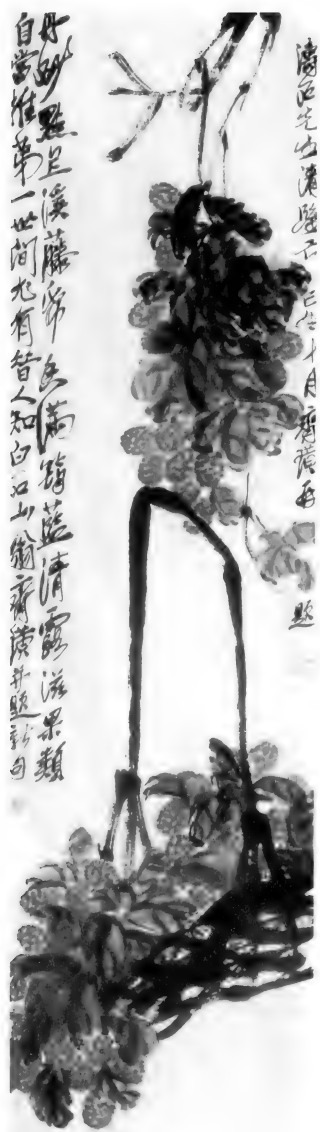 濤石先生清鑒 石 己巳十月齊璜再
題
丹砂點上溪藤紙 香滿筠藍清露滋 果類
自當推第一 世間尤有昔人知 白石山翁齊璜并題新句